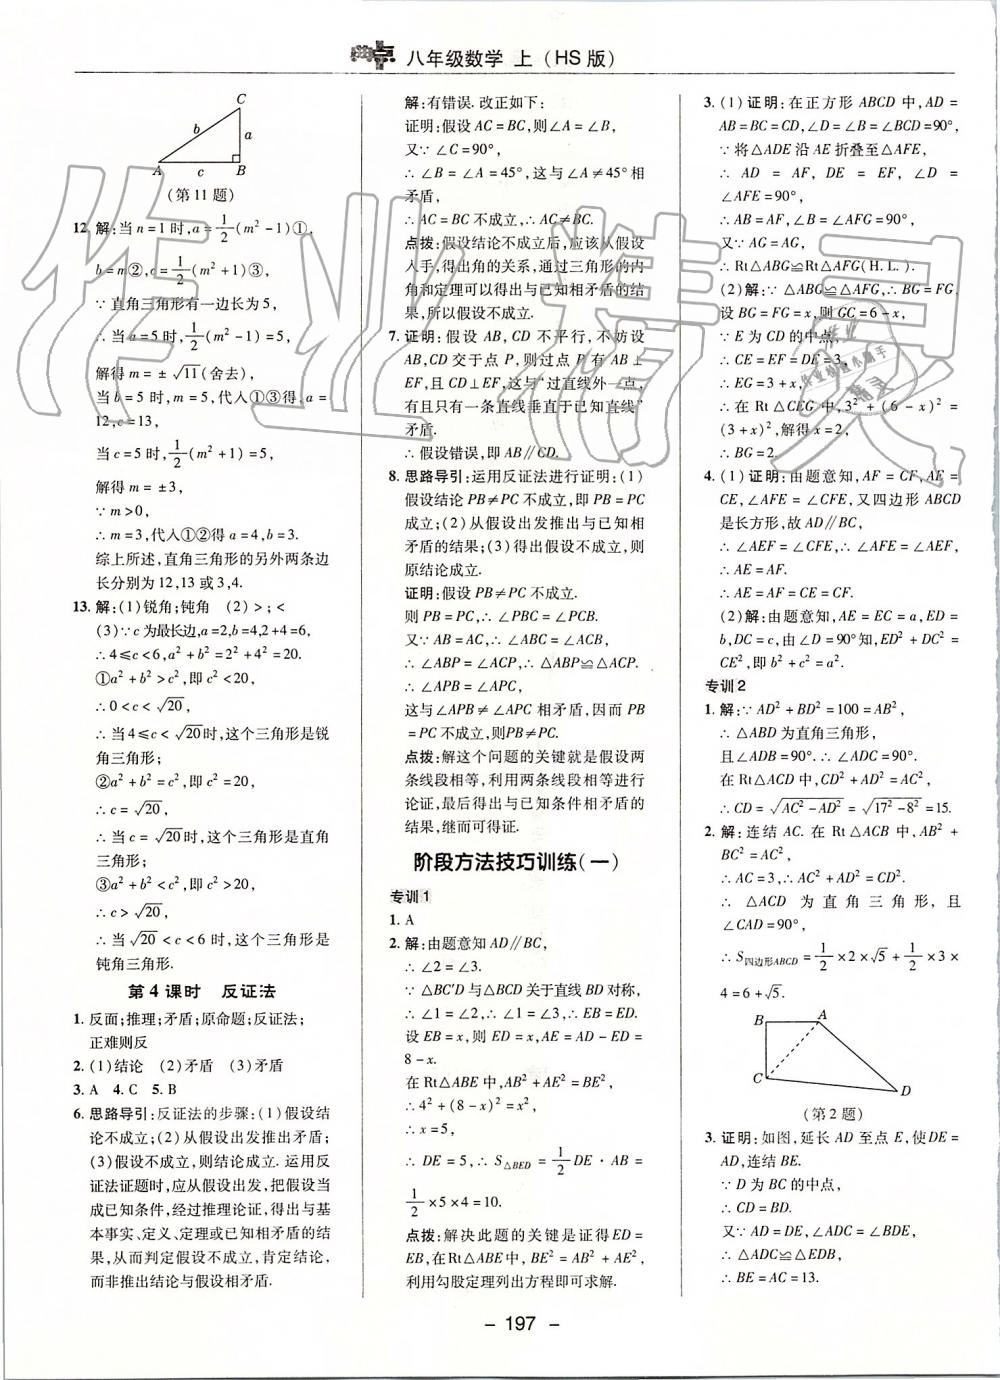 典点 八年级数学 上(HS版)
C
b
a
A
c
B
(第11题)
12. 解:当n=1时,a=1/2(m²-1)①,
b=m②,c=1/2(m²+1)③,
∵直角三角形有一边长为5,
∴当a=5时,1/2(m²-1)=5,
解得m=±√11(舍去),
当b=5时,m=5,代入①③得,a=
12,c=13,
当c=5时,1/2(m²+1)=5,
解得m=±3,
∵m>0,
∴m=3,代入①②得a=4,b=3.
综上所述,直角三角形的另外两条边
长分别为12,13或3,4.
13. 解:(1)锐角;钝角 (2)>;<
(3)∵c为最长边,a=2,b=4,2+4=6,
∴4≤c<6,a²+b²=2²+4²=20.
①a²+b²>c²,即c²<20,
∴0<c<√20,
∴当4≤c<√20时,这个三角形是锐
角三角形;
②a²+b²=c²,即c²=20,
∴c=√20,
∴当c=√20时,这个三角形是直角
三角形;
③a²+b²<c²,即c²>20,
∴c>√20,
∴当√20<c<6时,这个三角形是
钝角三角形.
第4课时 反证法
1. 反面;推理;矛盾;原命题;反证法;
正难则反
2. (1)结论 (2)矛盾 (3)矛盾
3. A 4. C 5. B
6. 思路导引:反证法的步骤:(1)假设结
论不成立;(2)从假设出发推出矛盾;
(3)假设不成立,则结论成立.运用反
证法证题时,应从假设出发,把假设当
成已知条件,经过推理论证,得出与基
本事实、定义、定理或已知相矛盾的结
果,从而判定假设不成立,肯定结论,
而非推出结论与假设相矛盾.
解:有错误.改正如下:
证明:假设AC=BC,则∠A=∠B,
又∵∠C=90°,
∴∠B=∠A=45°,这与∠A≠45°相
矛盾,
∴AC=BC不成立,∴AC≠BC.
点拨:假设结论不成立后,应该从假设
入手,得出角的关系,通过三角形的内
角和定理可以得出与已知相矛盾的结
果,所以假设不成立.
7. 证明:假设AB,CD不平行,不妨设
AB,CD交于点P,则过点P有AB⊥
EF,且CD⊥EF,这与“过直线外一点,
有且只有一条直线垂直于已知直线”
矛盾.
∴假设错误,即AB∥CD.
8. 思路导引:运用反证法进行证明:(1)
假设结论PB≠PC不成立,即PB=PC
成立;(2)从假设出发推出与已知相
矛盾的结果;(3)得出假设不成立,则
原结论成立.
证明:假设PB≠PC不成立.
则PB=PC,∴∠PBC=∠PCB.
又∵AB=AC,∴∠ABC=∠ACB,
∴∠ABP=∠ACP,∴△ABP≌△ACP.
∴∠APB=∠APC,
这与∠APB≠∠APC相矛盾,因而PB
=PC不成立,则PB≠PC.
点拨:解这个问题的关键就是假设两
条线段相等,利用两条线段相等进行
论证,最后得出与已知条件相矛盾的
结果,继而可得证.
阶段方法技巧训练(一)
专训1
1. A
2. 解:由题意知AD∥BC,
∴∠2=∠3.
∵△BC′D与△BCD关于直线BD对称,
∴∠1=∠2,∴∠1=∠3,∴EB=ED.
设EB=x,则ED=x,AE=AD-ED=
8-x.
在Rt△ABE中,AB²+AE²=BE²,
∴4²+(8-x)²=x²,
∴x=5,
∴DE=5,∴S△BED=1/2DE·AB=
1/2×5×4=10.
点拨:解决此题的关键是证得ED=
EB,在Rt△ABE中,BE²=AB²+AE²,
利用勾股定理列出方程即可求解.
3. (1)证明:在正方形ABCD中,AD=
AB=BC=CD,∠D=∠B=∠BCD=90°,
∵将△ADE沿AE折叠至△AFE,
∴AD=AF,DE=EF,∠D=
∠AFE=90°,
∴AB=AF,∠B=∠AFG=90°,
又∵AG=AG,
∴Rt△ABG≌Rt△AFG(H.L.).
(2)解:∵△ABG≌△AFG,∴BG=FG,
设BG=FG=x,则GC=6-x,
∵E为CD的中点,
∴CE=EF=DE=3,
∴EG=3+x,
∴在Rt△CEG中,3²+(6-x)²=
(3+x)²,解得x=2,
∴BG=2.
4. (1)证明:由题意知,AF=CF,AE=
CE,∠AFE=∠CFE,又四边形ABCD
是长方形,故AD∥BC,
∴∠AEF=∠CFE,∴∠AFE=∠AEF,
∴AE=AF.
∴AE=AF=CE=CF.
(2)解:由题意知,AE=EC=a,ED=
b,DC=c,由∠D=90°知,ED²+DC²=
CE²,即b²+c²=a².
专训2
1. 解:∵AD²+BD²=100=AB²,
∴△ABD为直角三角形,
且∠ADB=90°.∴∠ADC=90°.
在Rt△ADC中,CD²+AD²=AC²,
∴CD=√(AC²-AD²)=√(17²-8²)=15.
2. 解:连结AC.在Rt△ACB中,AB²+
BC²=AC²,
∴AC=3,∴AC²+AD²=CD²,
∴△ACD为直角三角形,且
∠CAD=90°.
∴S四边形ABCD=1/2×2×√5+1/2×3×
4=6+√5.
B
A
C
D
(第2题)
3. 证明:如图,延长AD至点E,使DE=
AD,连结BE.
∵D为BC的中点,
∴CD=BD.
又∵AD=DE,∠ADC=∠BDE,
∴△ADC≌△EDB,
∴BE=AC=13.
- 197 -
作业精灵